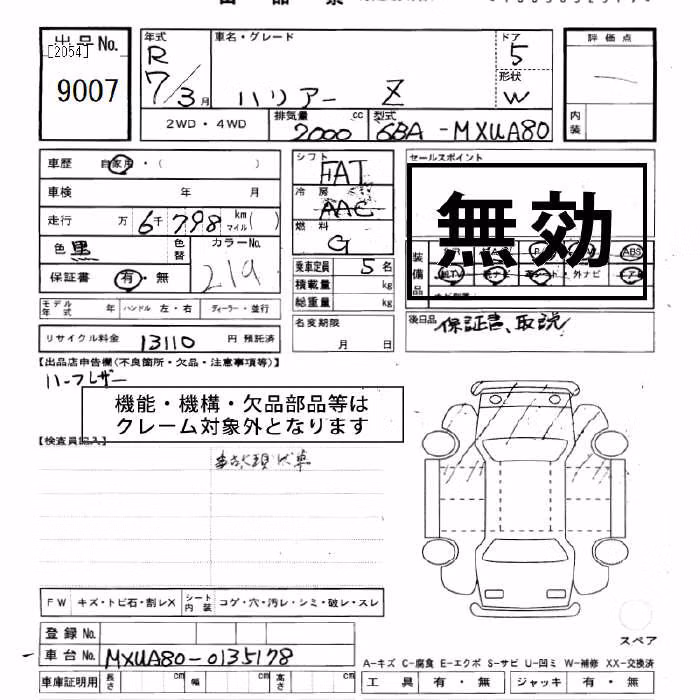 [2054]
出品No.
9007
年式
R
7/3月
車名・グレード
ハリアー Z
ドア
5
形状
W
評価点
内装
2WD・4WD
排気量
2000 cc
型式
6BA-MXUA80
車歴 自家用・( )
車検 年 月
走行 万 6千798 km マイル( )
色 黒
色替
カラーNo.
219
保証書 有・無
モデル年式 年
ハンドル 左・右
ディーラー・並行
リサイクル料金 13110 円 預託済
シフト
FAT
冷房
AAC
燃料
G
乗車定員 5名
積載量 kg
総重量 kg
名変期限
月 日
セールスポイント
無効
装備品
ABS
後日品
保証書、取説
【出品店申告欄(不良箇所・欠品・注意事項等)】
ハーフレザー
機能・機構・欠品部品等は
クレーム対象外となります
【検査員記入】
事故現状車
FW キズ・トビ石・割レX
シート内装 コゲ・穴・汚レ・シミ・破レ・スレ
登録No.
車台No. MXUA80-0135178
車庫証明用 長さ cm 幅 cm 高さ cm
スペア
A-キズ C-腐食 E-エクボ S-サビ U-凹ミ W-補修 XX-交換済
工具 有・無 ジャッキ 有・無